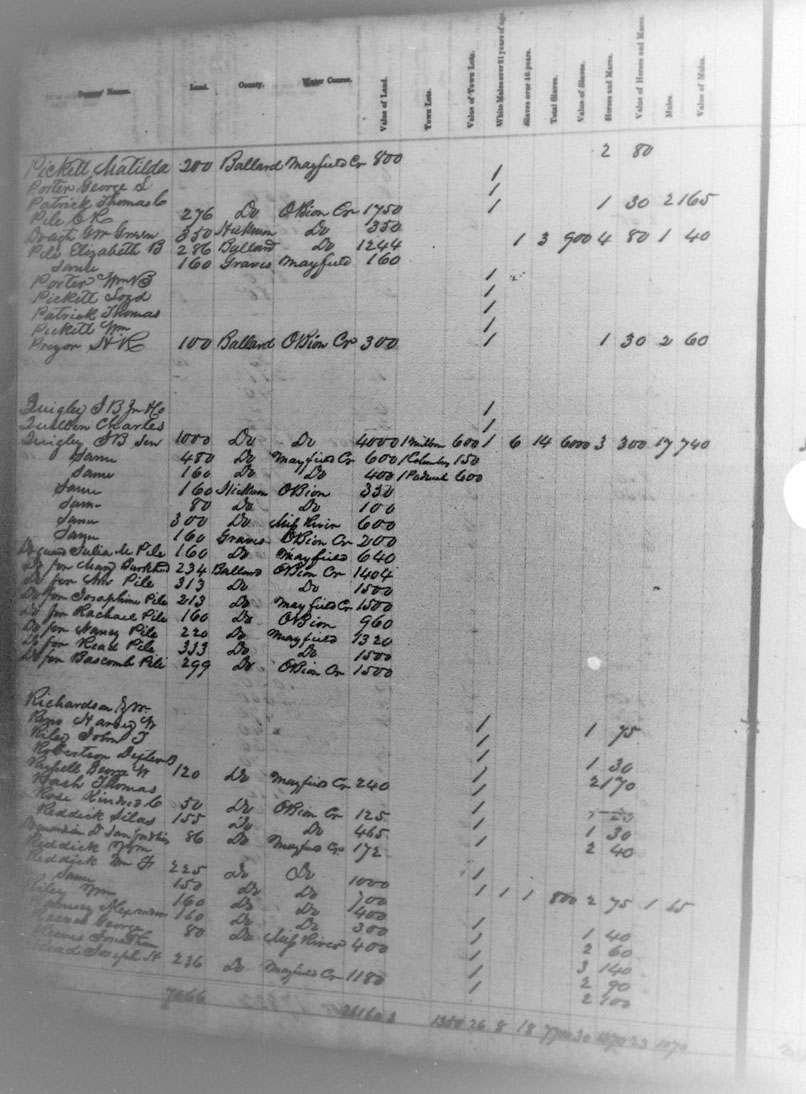 Persons' Names. Land. County. Water Course. Value of Land. Town Lots. Value of Town Lots. White Males over 21 years of age. Slaves over 16 years. Total Slaves. Value of Slaves. Horses and Mares. Value of Horses and Mares. Mules. Value of Mules.
Pickett Matilda 200 Ballard Mayfield Cr 800 2 80
Porter George S 1
Patrick Thomas C 1
Pile C R 276 Do OBion Cr 1750 1 1 30 2 165
350 Hickman Do 350
Pile Elizabeth B 286 Ballard Do 1244 1 3 900 4 80 1 40
Same 160 Graves Mayfield 160
Porter Wm B 1
Pickett Loyd 1
Patrick Thomas 1
Pickett Wm 1
Pryor H R 100 Ballard OBion Cr 300 1 1 30 2 60
Quigley J B Jr 1
Charles 1
Quigley J B Sen 1000 Do Do 4000 1 Milburn 600 1 6 14 6000 3 300 17 740
Same 480 Do Mayfield Cr 600 1 Columbus 150
Same 160 Do Do 400 1 Paducah 600
Same 160 Hickman OBion 350
Same 80 Do Do 100
Same 300 Do Miss River 600
Same 160 Graves OBion Cr 200
Do Julia M Pile 160 Do Mayfield 640
Do for Mary 234 Ballard OBion Cr 1404
Do for Ann Pile 313 Do Do 1500
Do for Josaphine Pile 213 Do Mayfield Cr 1500
Do for Rachael Pile 160 Do OBion 960
Do for Nancy Pile 220 Do Mayfield 1320
Do for Read Pile 333 Do Do 1500
Do for Bascomb Pile 299 Do OBion Cr 1500
Richardson Wm
Harvey W 1 1 75
Riley John T 1
Robertson 1 1 30
Russell George W 120 Do Mayfield Cr 240 1 2 170
Roach Thomas 1
Rose C 50 Do OBion Cr 125 1
Reddick Silas 155 Do Do 465 1 1 30
86 Do Mayfield Cr 172 2 40
Reddick Wm 1
Reddick Wm H 225 Do Do 1000 1 1 1 800 2 75 1 65
Same 150 Do Do 700
Riley Wm 160 Do Do 400 1 1 40
Ramsey Alexander 160 Do Do 300 1 2 60
Reeves George 80 Do Miss River 400 1 3 140
Reeves Jonathan 1 2 90
Read Joseph H 236 Do Mayfield Cr 1180 1 2 100
7066 26160 1350 26 8 18 7700 30 23 1070